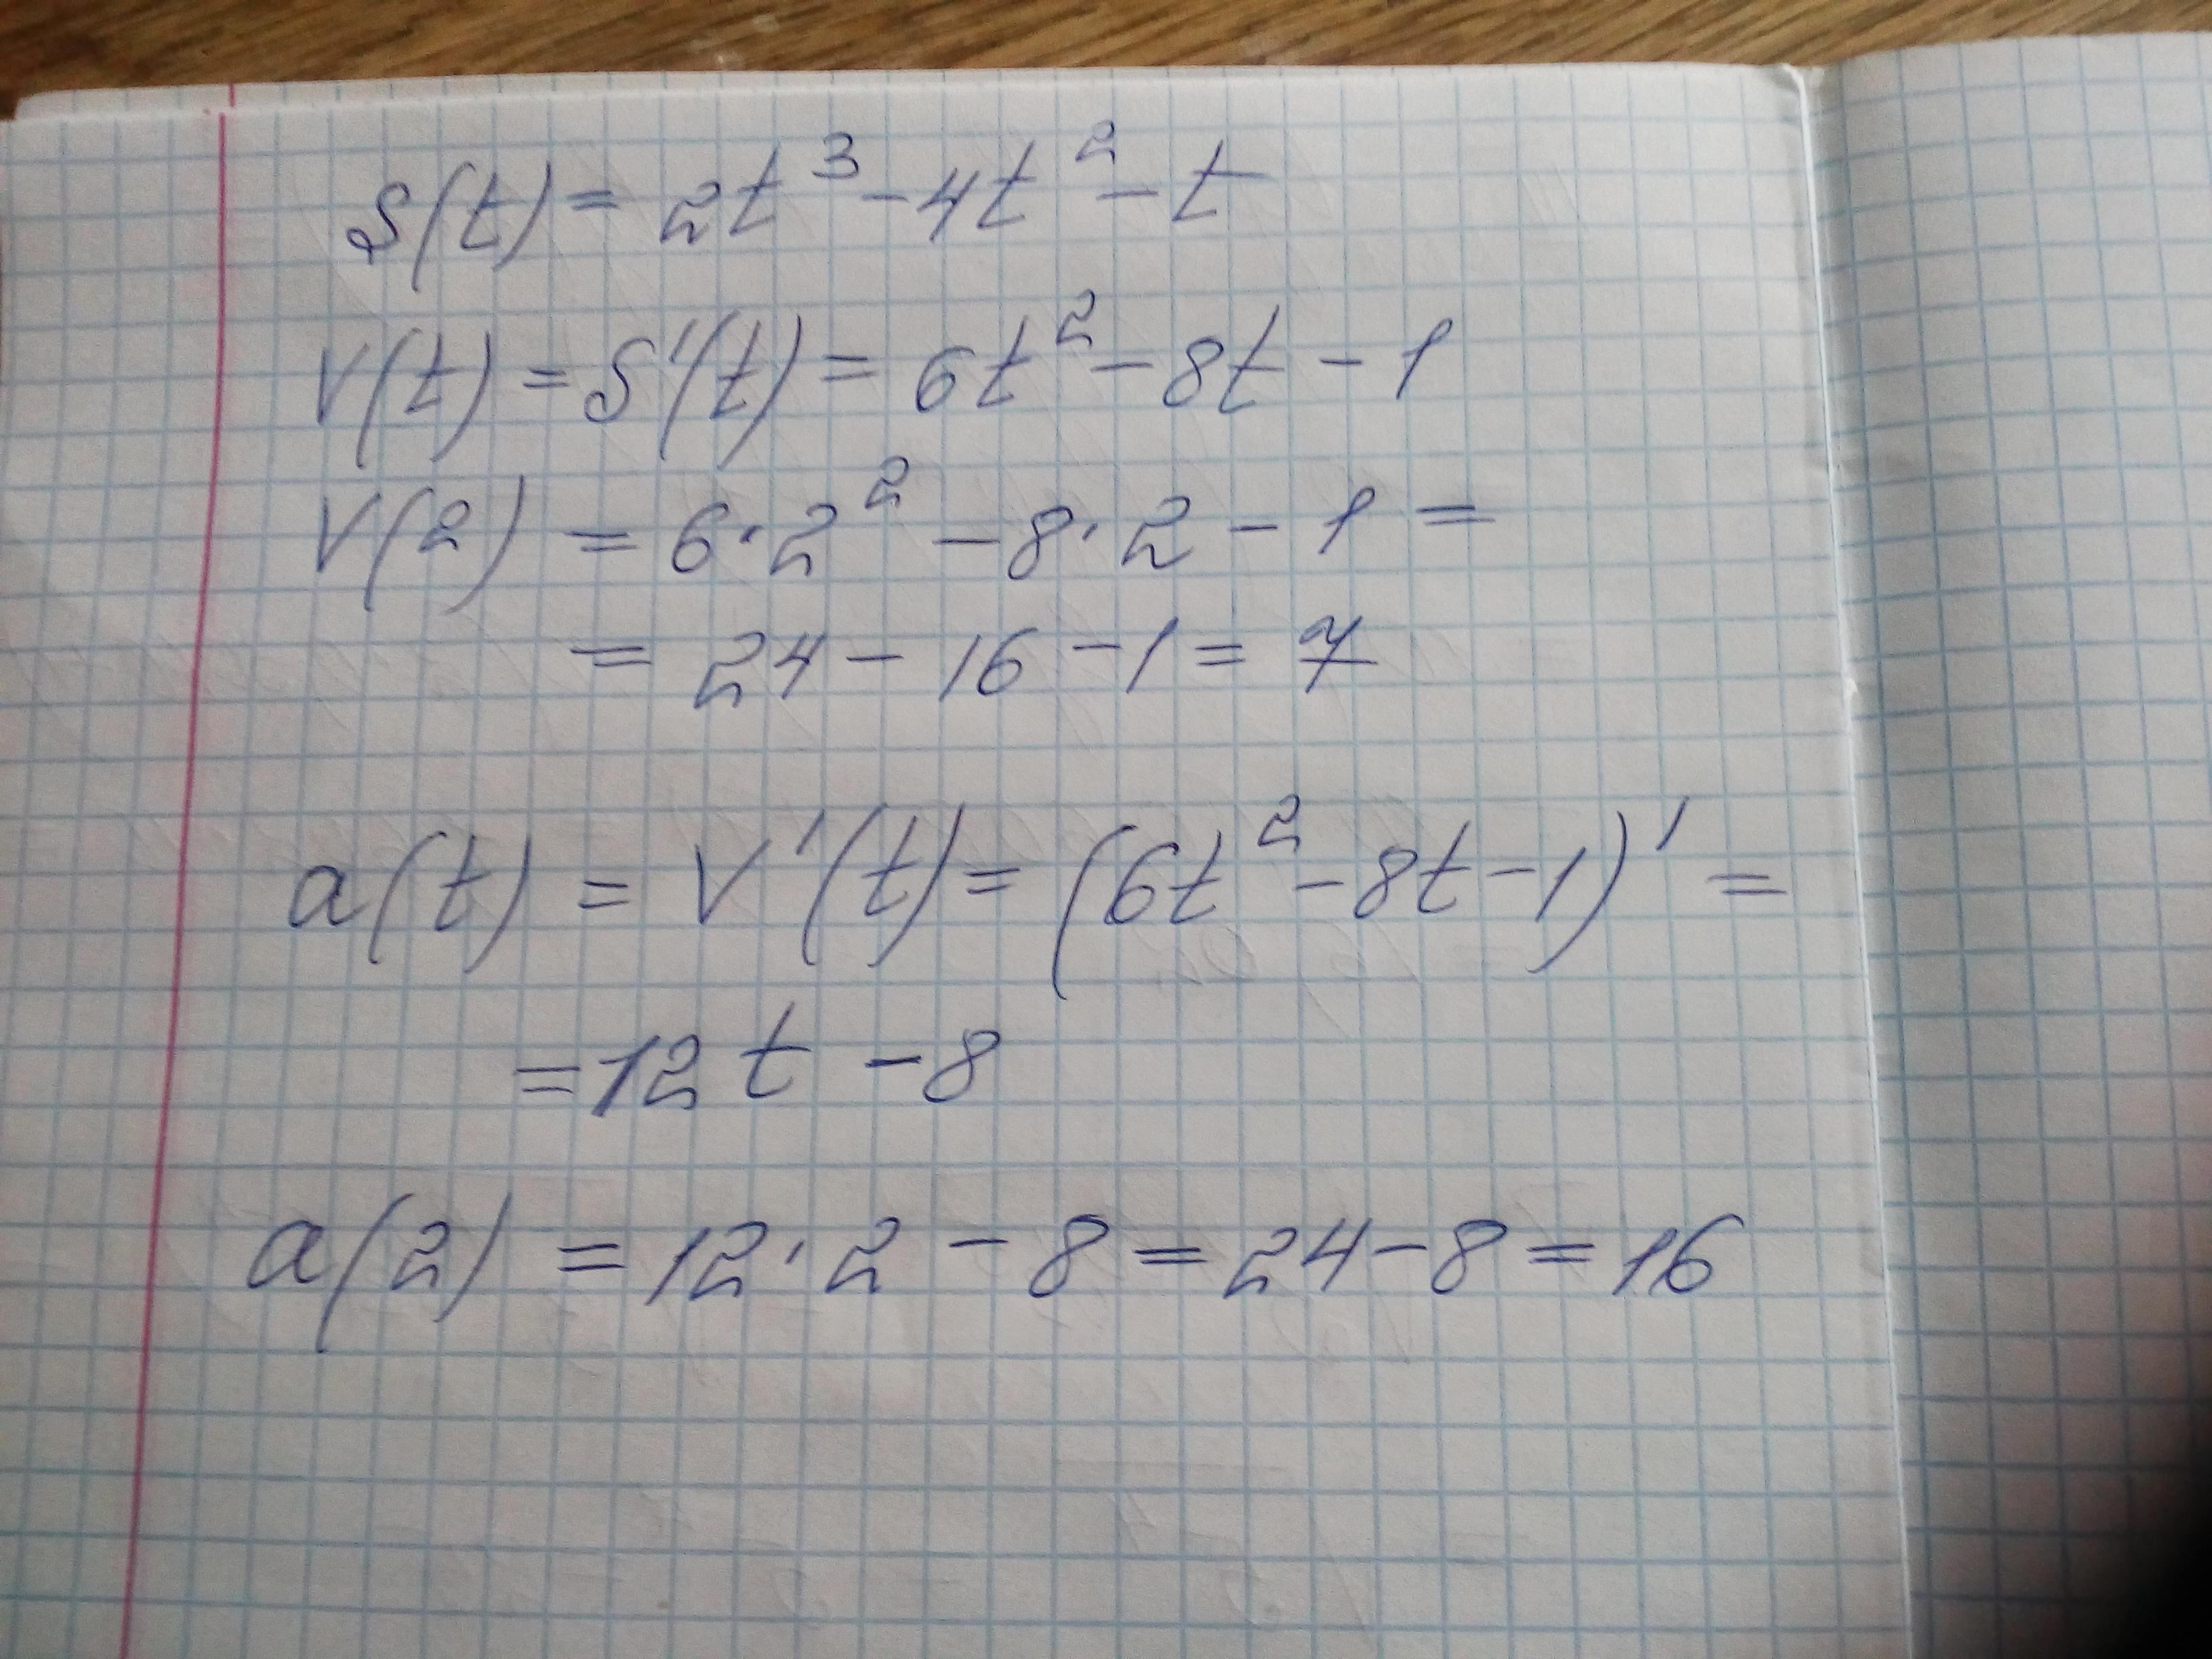 S(t) = 2t³ - 4t² - t
V(t) = S'(t) = 6t² - 8t - 1
V(2) = 6·2² - 8·2 - 1 =
= 24 - 16 - 1 = 7
a(t) = V'(t) = (6t² - 8t - 1)' =
= 12t - 8
a(2) = 12·2 - 8 = 24 - 8 = 16